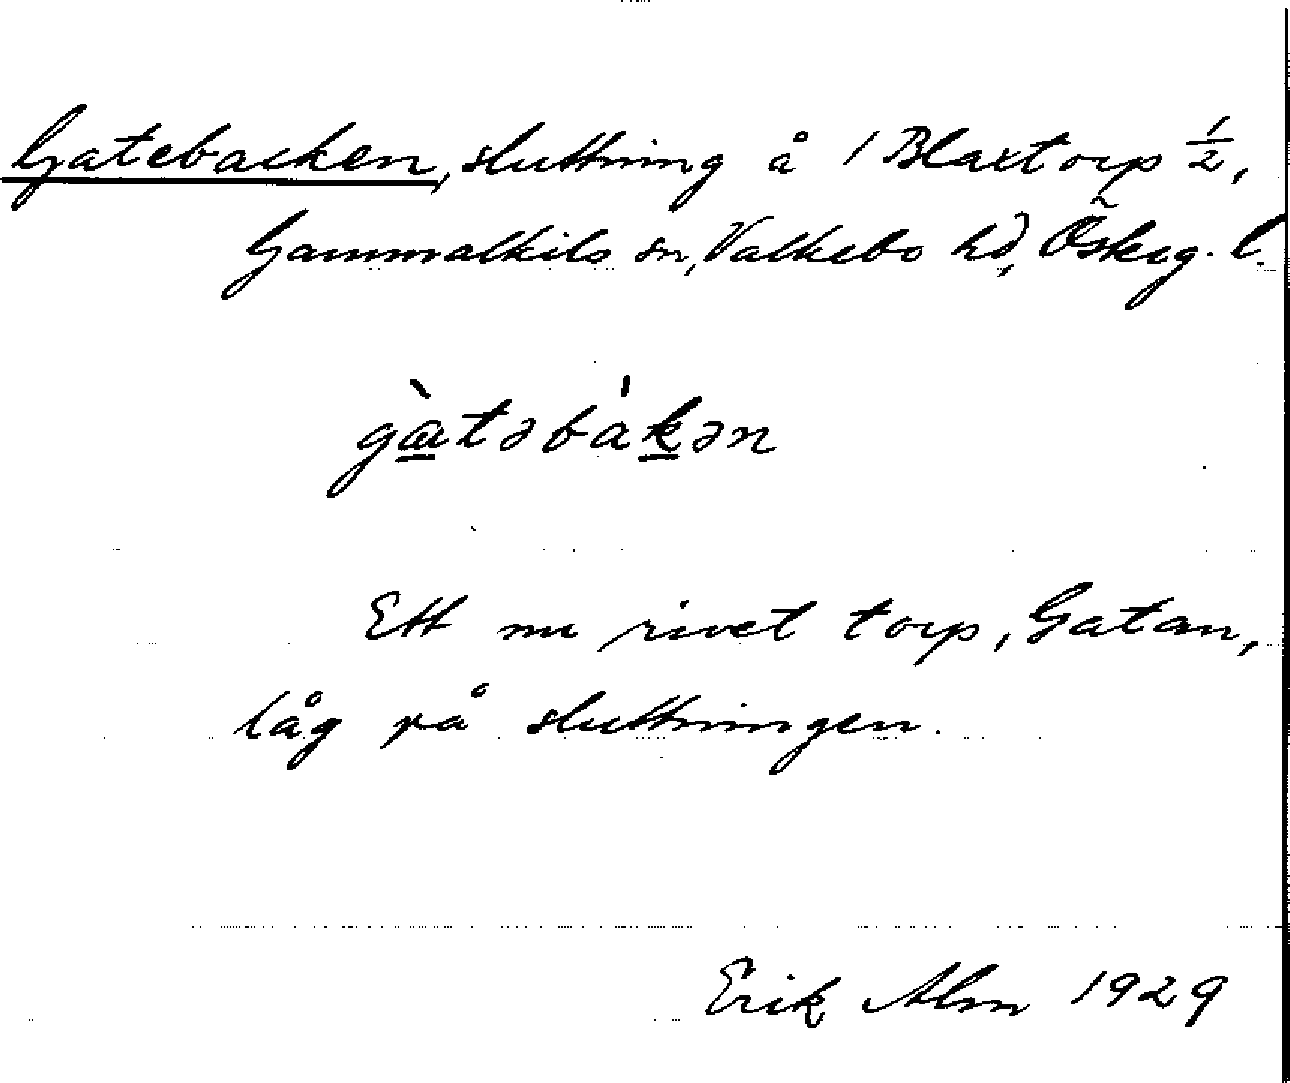 Gatebacken, sluttning å 1 Blaxtorp 1/2,
Gammalkils sn, Valkebo hd, Österg. l.
gàtəbákən
Ett nu rivet torp, Gatan,
låg på sluttningen.
Erik Alm 1929